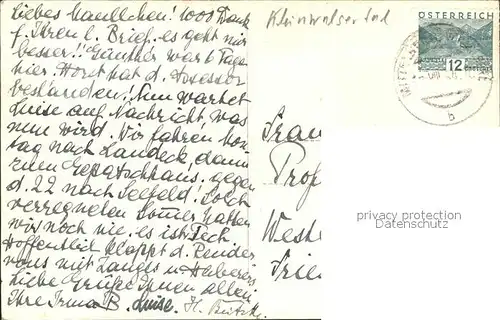 Liebes Maullchen! 1000 Dank
f. Ihren l. Brief. es geht mir
besser!! Günther war 6 Tage
hier. Horst hat d. Assessor
bestanden! Nun wartet
Luise auf Nachricht, was
nun wird. Wir fahren
tag nach Landeck, dann
zum Gepatschhaus. gegen
d. 22 nach Seefeld! Solch
verregneten Sommer hatten
wir noch nie. es ist Pech.
Hoffentlich klappt d. Rendez
vous mit Langes u. Haberers
Liebe Grüße Ihnen allen
Ihre Irma B. Luise.
Kleinwalsertal
ÖSTERREICH
12
b
Frau
Prof
Weste
Frie
privacy protection
DatenschutzOverlay